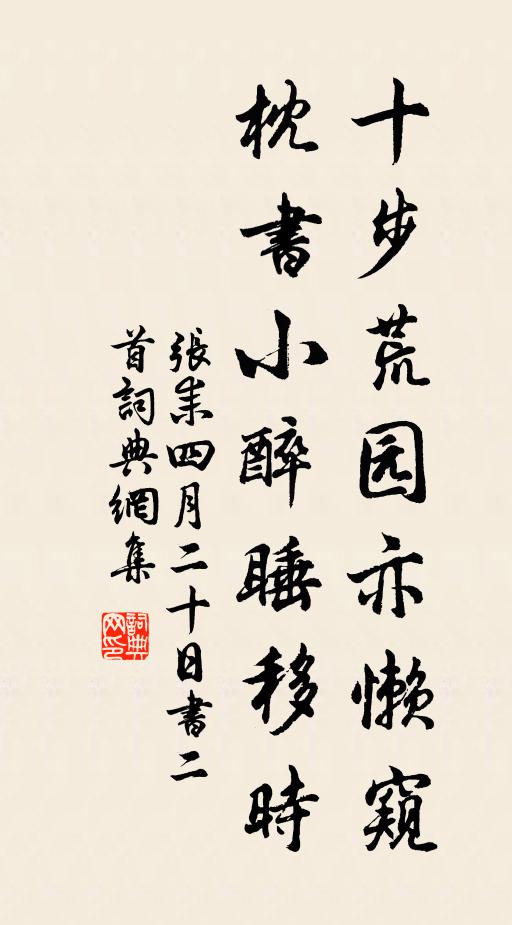 十步荒园亦懒窥
枕書小醉睡移時
張耒四月二十日書二
首詞典網集
詞典
网印